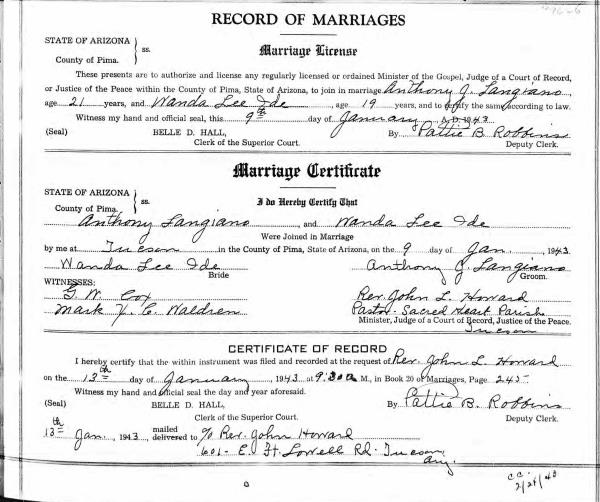 RECORD OF MARRIAGES
STATE OF ARIZONA
County of Pima.
ss.
Marriage License
These presents are to authorize and license any regularly licensed or ordained Minister of the Gospel, Judge of a Court of Record,
or Justice of the Peace within the County of Pima, State of Arizona, to join in marriage Anthony J. Langiano,
age 21 years, and Wanda Lee Ide, age 19 years, and to certify the same according to law.
Witness my hand and official seal, this 9th day of January, A. D. 1943
(Seal) BELLE D. HALL, By Pattie B. Robbins
Clerk of the Superior Court. Deputy Clerk.
Marriage Certificate
STATE OF ARIZONA
County of Pima.
ss.
I do Hereby Certify That
Anthony Langiano, and Wanda Lee Ide
Were Joined in Marriage
by me at Tucson in the County of Pima, State of Arizona, on the 9 day of Jan. 1943
Wanda Lee Ide Anthony J. Langiano
Bride Groom.
WITNESSES:
G. W. Cox Rev. John L. Howard
Mark C. Waldren Pastor- Sacred Heart Parish
Minister, Judge of a Court of Record, Justice of the Peace.
Tucson
CERTIFICATE OF RECORD
I hereby certify that the within instrument was filed and recorded at the request of Rev. John L. Howard
on the 13th day of January, 1943 at 9:30 a M., in Book 20 of Marriages, Page 245
Witness my hand and official seal the day and year aforesaid.
(Seal) BELLE D. HALL, By Pattie B. Robbins
Clerk of the Superior Court. Deputy Clerk.
13th Jan., 1943 mailed delivered to % Rev. John Howard
601- E. Ft. Lowell Rd. Tucson
Ariz.